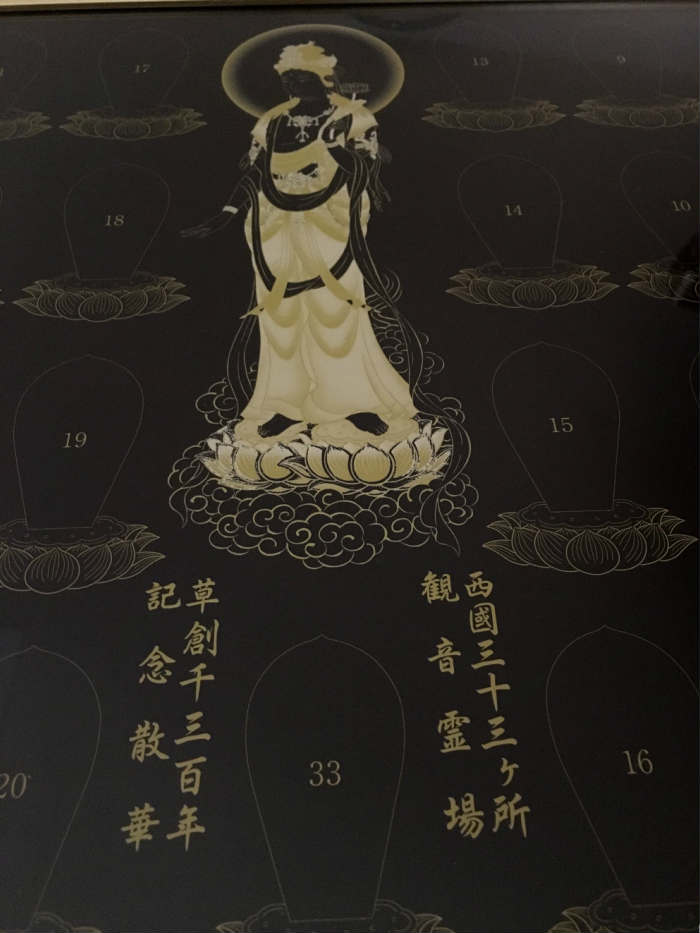 西國三十三ヶ所
観音霊場
草創千三百年
記念散華
17
13
9
18
14
10
19
15
20
33
16